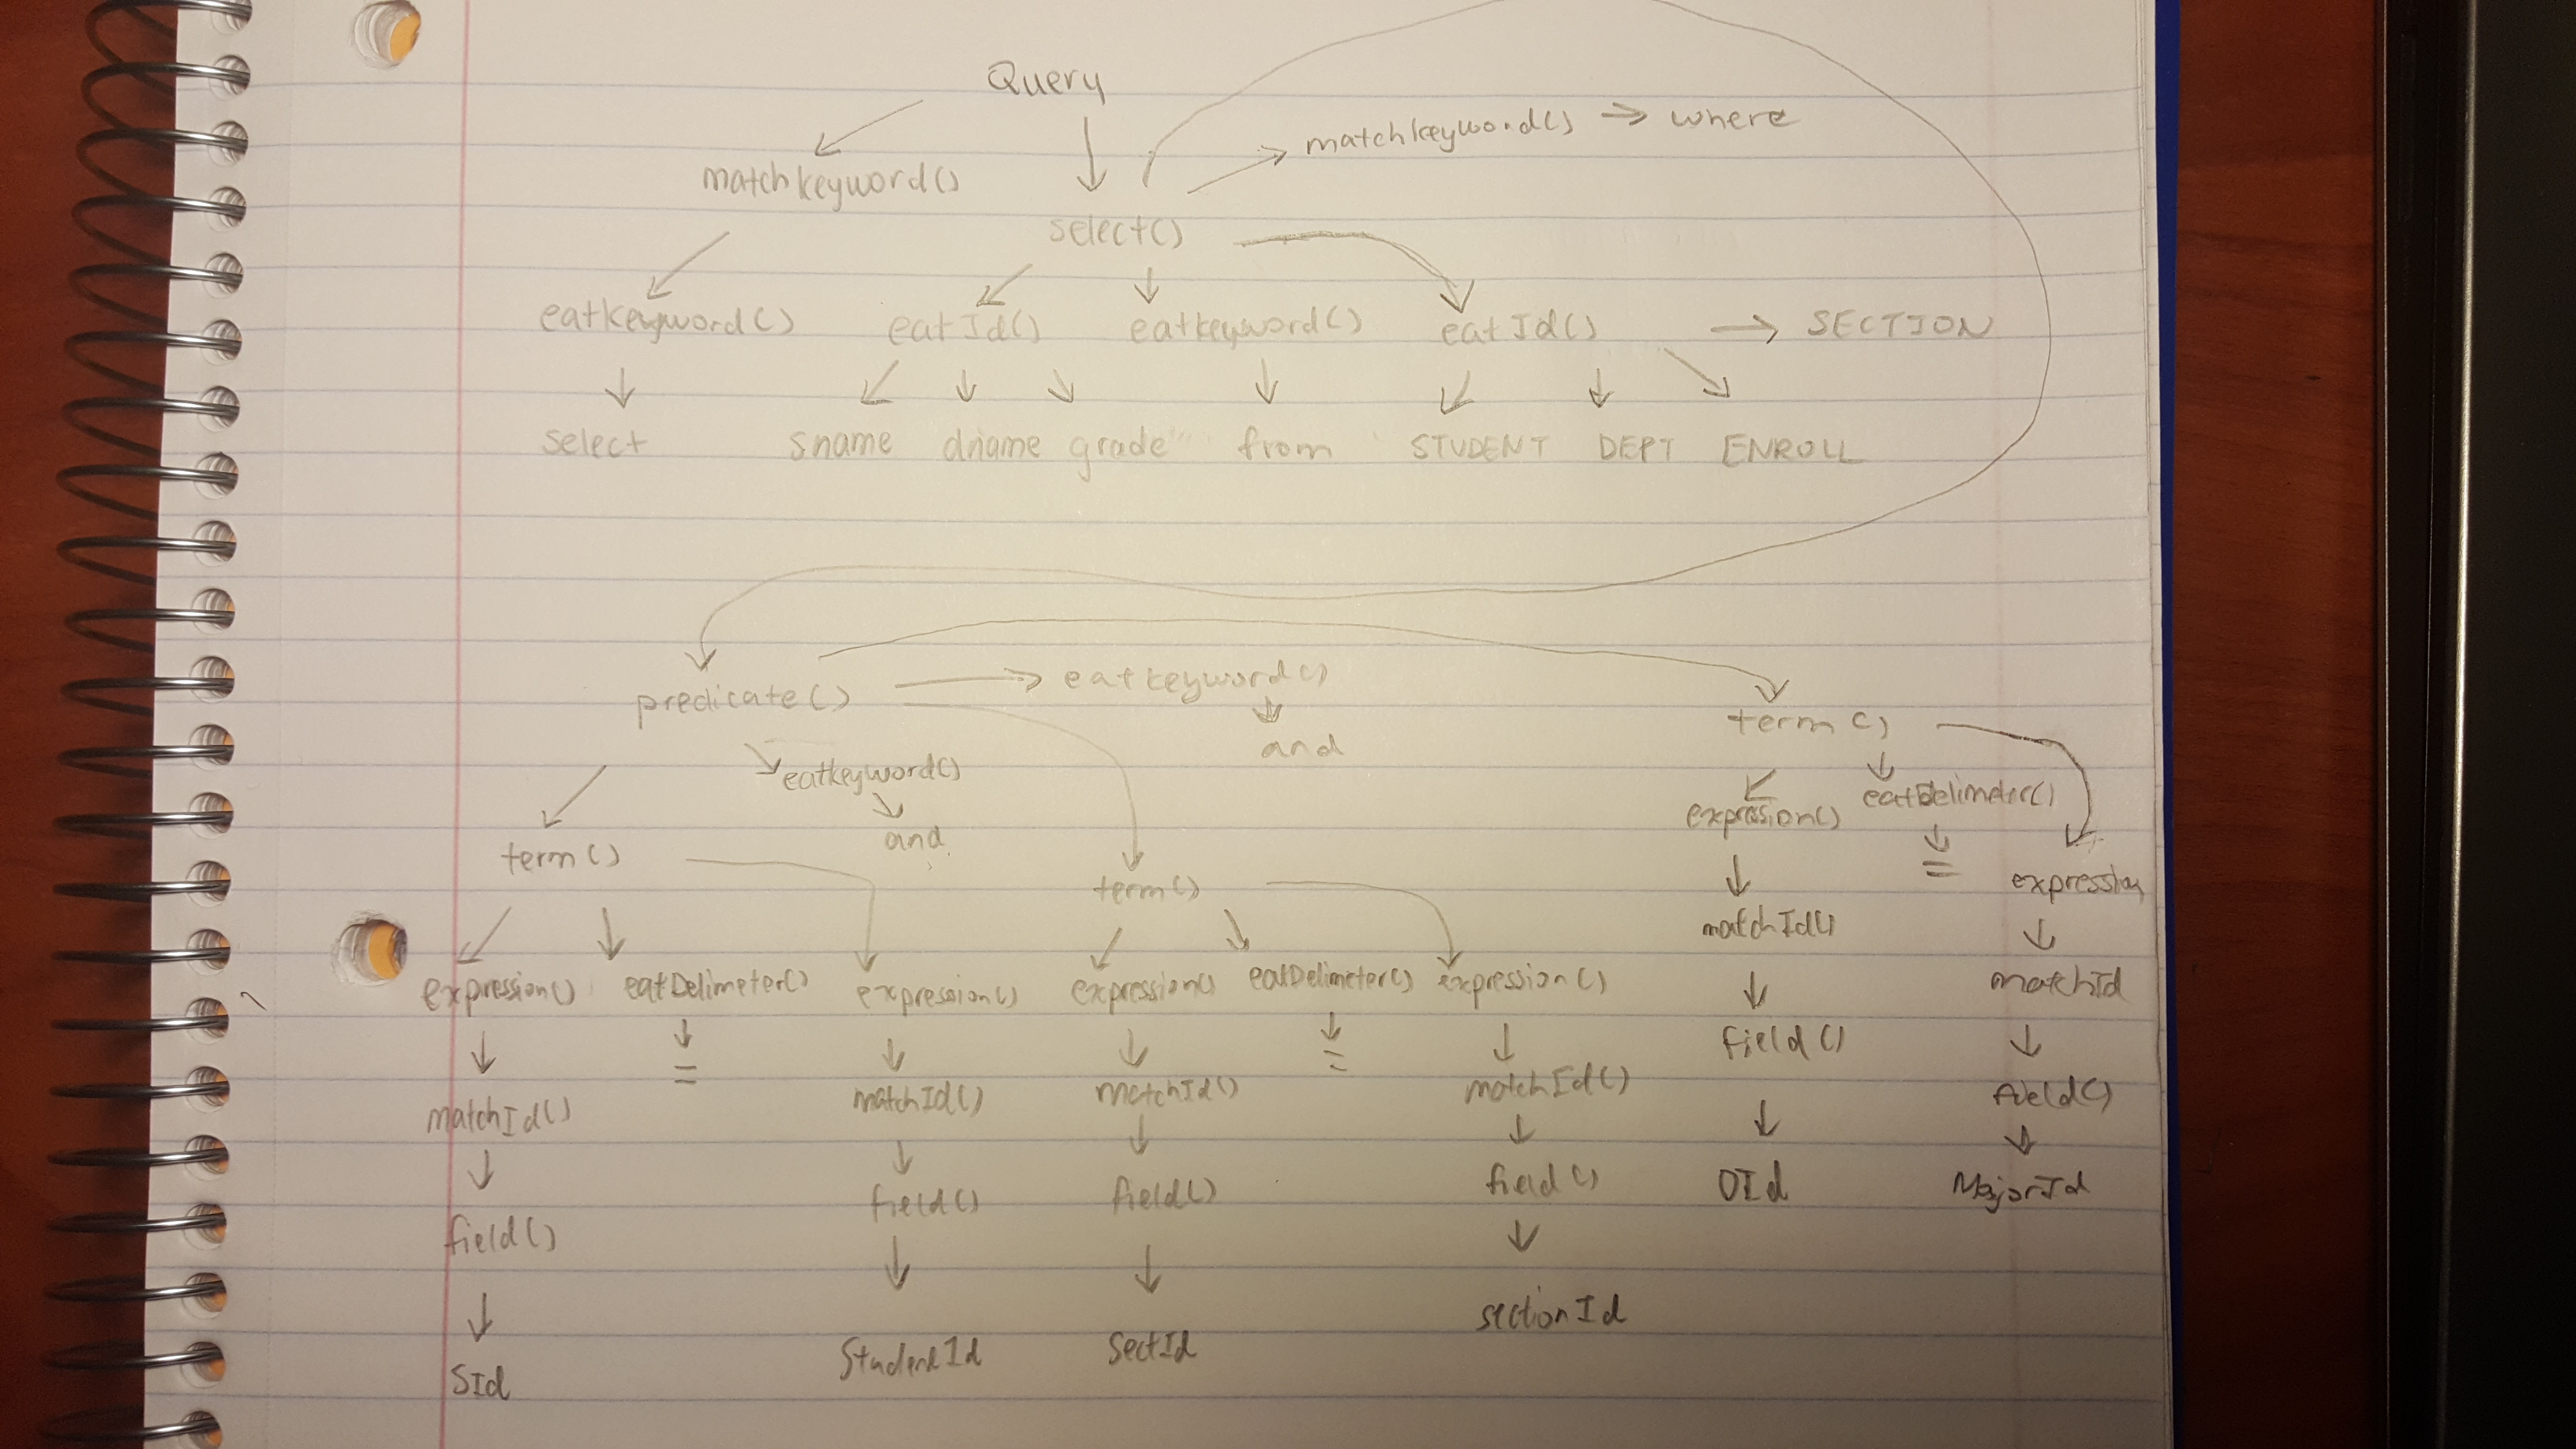 Query
matchkeyword() → matchkeyword() ⇒ where
select()
eatkeyword() eatId() eatkeyword() eatId() → SECTION
select sname dname grade from STUDENT DEPT ENROLL
predicate() → eatkeyword() term()
eatkeyword() and expression() eatDelimeter()
term() and term() = expression
expression() eatDelimeter() expression() expression() eatDelimeter() expression() matchId() matchId
= =
matchId() matchId() matchId() matchId() field() field()
field() field() field() field() DId MajorId
SId StudentId SectId sectionId